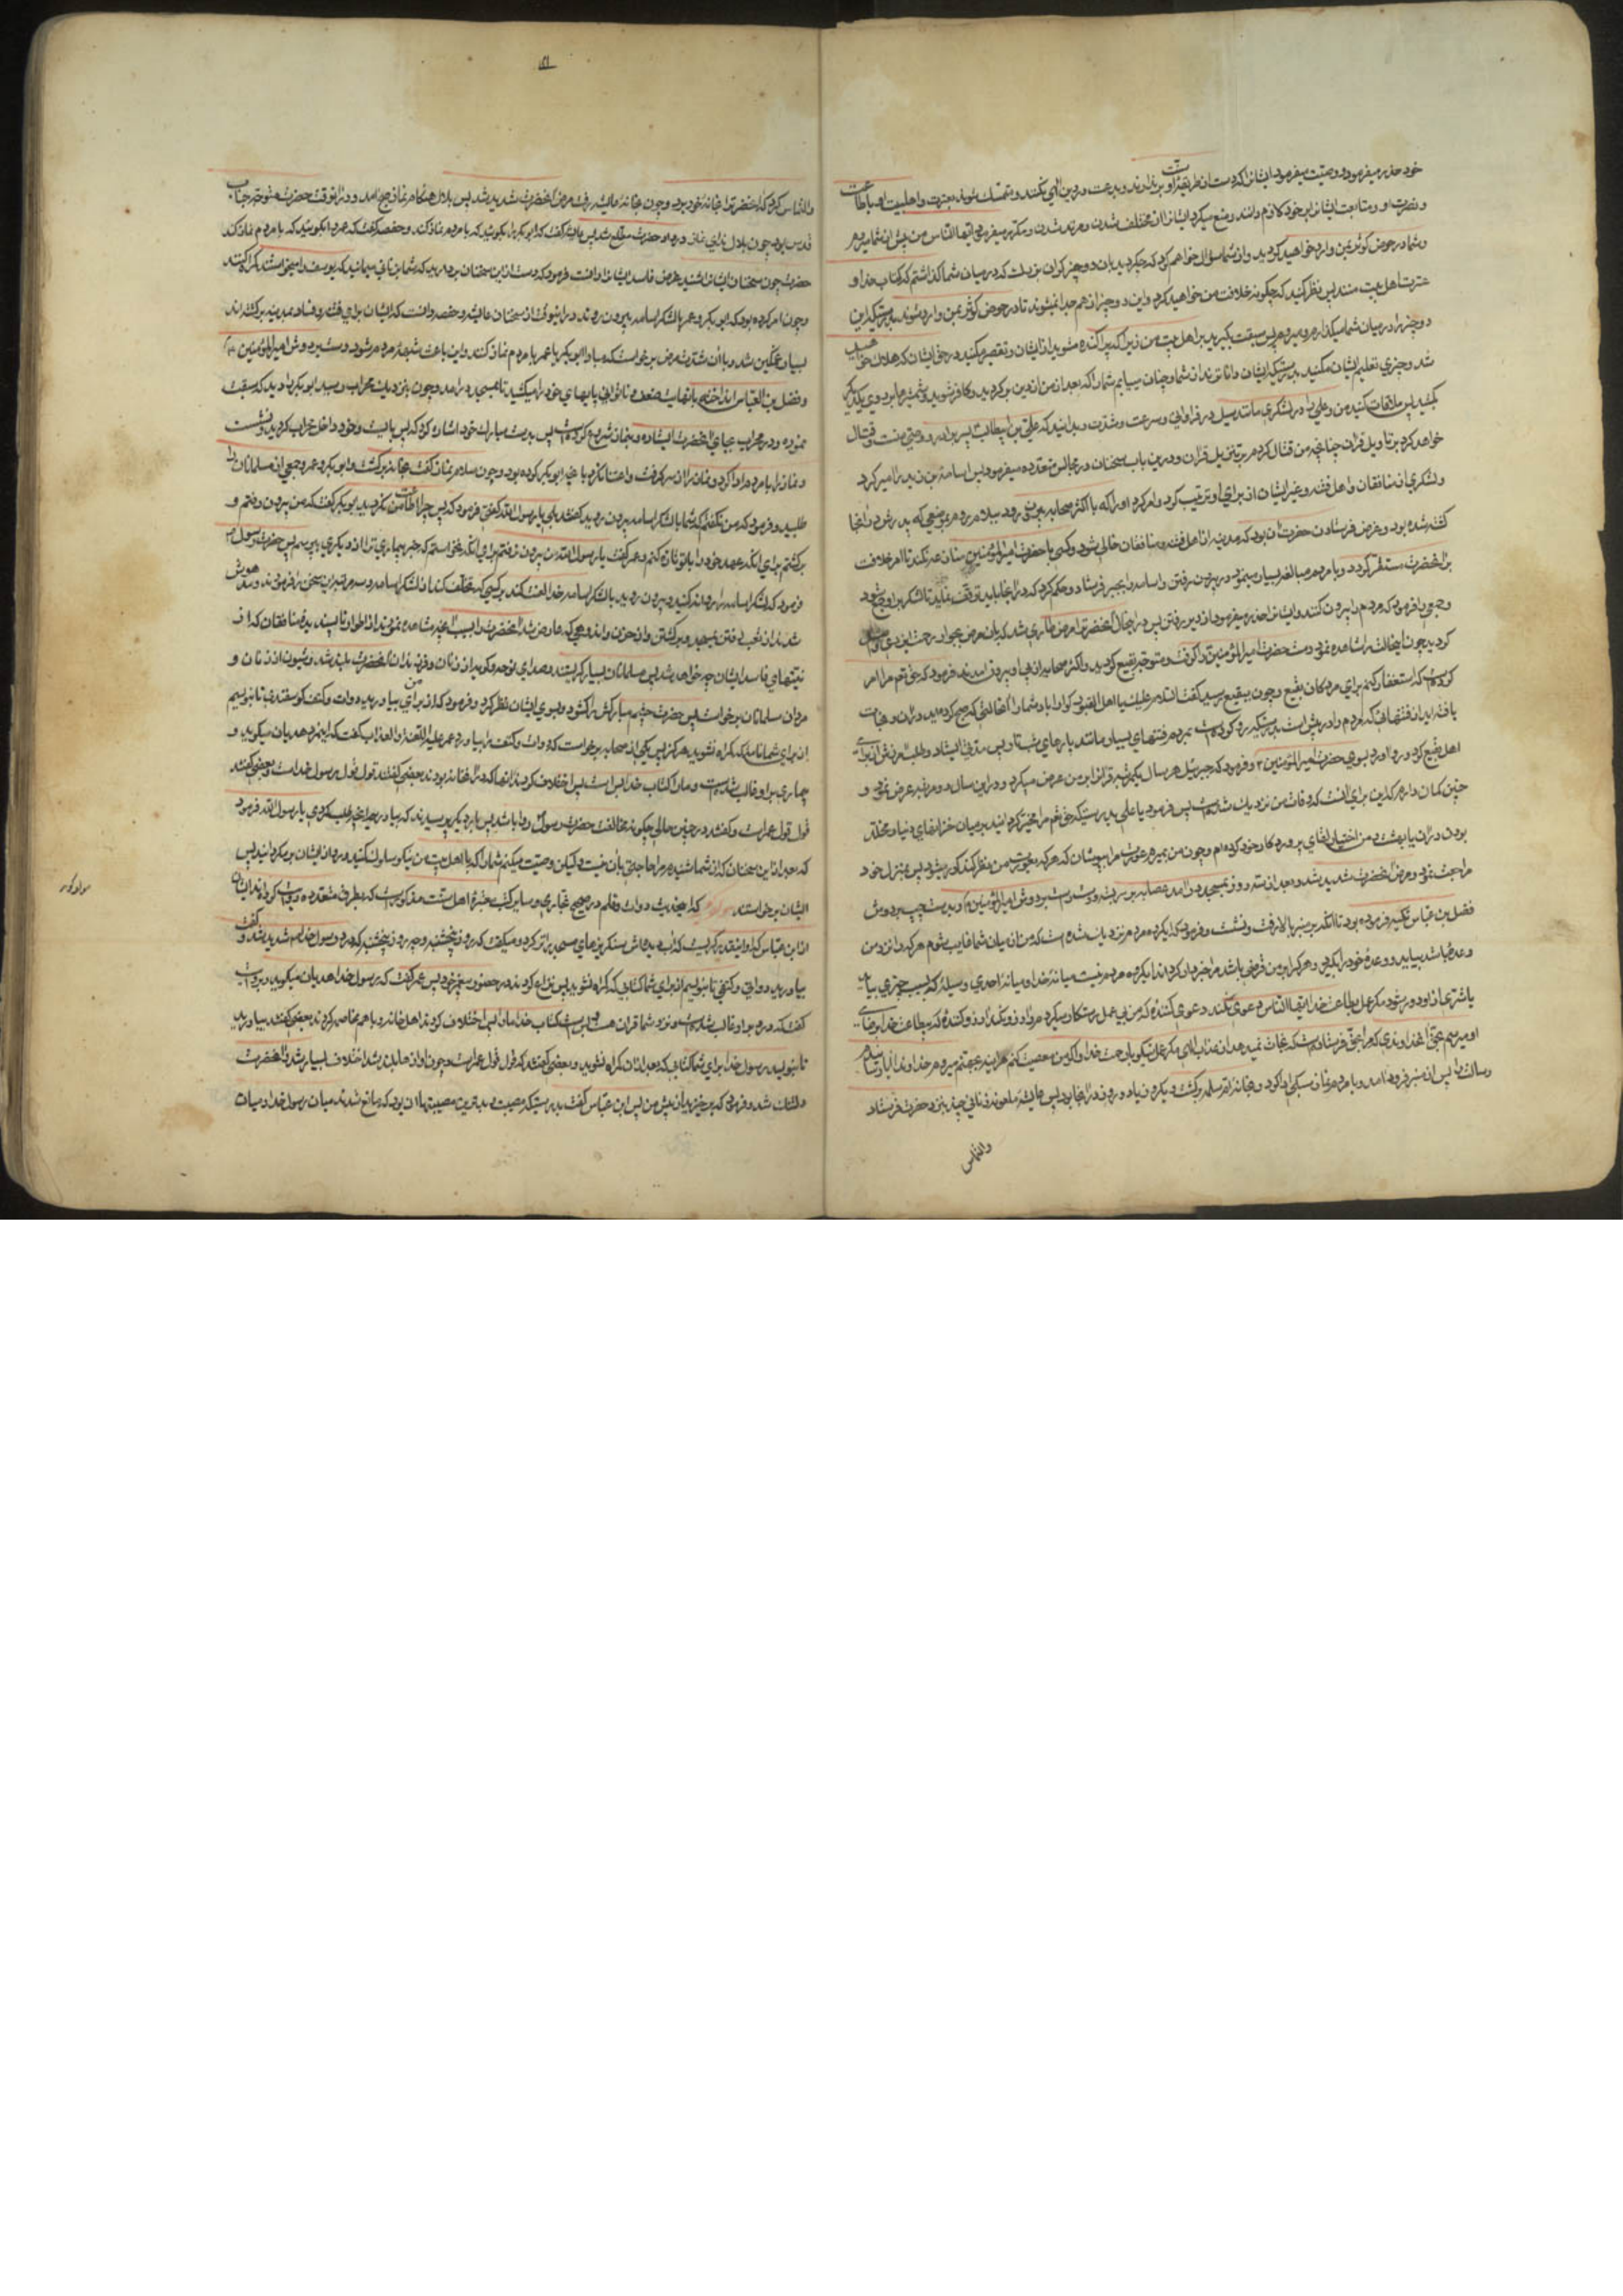 خود حذر میفرمود و وصیت میفرمود ایشانرا که دست از طریقهٔ او بر ندارند و بدعت در دین الهی نکنند و متمسک شوند بعترت و اهلبیت او باطاعت
و نصرت او و متابعت ایشانرا بر خود لازم دانند و منع میکرد ایشانرا از مختلف شدن و مرتد شدن و مکرر میفرمود که ایها الناس من پیش از شما میروم
و شما در حوض کوثر بمن وارد خواهید گردید و از شما سؤال خواهم کرد که چه کردید بان دو چیز گران بزرگ که در میان شما گذاشتم که کتاب خدا و
عترت اهل بیت منند پس نظر کنید که چگونه خلافت من خواهید کرد و این دو چیز از هم جدا نمیشوند تا در حوض کوثر بمن وارد شوند بدرستیکه این
دو چیز را در میان شما میگذارم و میروم پس سبقت مگیرید بر اهل بیت من زیرا که پراکنده میشوید از ایشان و تقصیر مکنید در حق ایشان که هلاک خواهید
شد و چیزی تعلیم ایشان مکنید بدرستیکه ایشان داناترند از شما و چنان میابم شما را که بعد از من از دین برگردید و کافر شوید و شمشیرها بر روی یکدیگر
بکشید پس ملاقات کنید من و علی را در لشکری مانند سیل در فراوانی و سرعت و شدت و بدانید که علی بن ابیطالب پسر برادر و وصی منست و قتال
خواهد کرد بر تاویل قران چنانچه من قتال کردم بر تنزیل قران و درین باب سخنان در مجالس متعدده میفرمود پس اسامة بن زید را امیر کرد
و لشکری از منافقان و اهل فتنه و غیر ایشان از برای او ترتیب کرد و امر کرد او را که با اکثر صحابه بیرون رود ببلاد روم بموضعی که پدرش در انجا
کشته شده بود و غرض حضرت از فرستادن ان بود که مدینه از اهل فتنه و منافقان خالی شود و کسی با حضرت امیرالمؤمنین منازعه نکند تا امر خلافت
بر انحضرت مستقر گردد و با مردم مبالغه بسیار مینمود در بیرون رفتن و اسامه را بجرف فرستاد و حکم کرد که در انجا باید توقف نماید تا لشکر بر او جمع شود
و جمعی را فرمود که مردم را بیرون کنند و ایشانرا حذر میفرمود از دیر رفتن پس در انحال انحضرترا مرض طاری شد که بان مرض بجوار رحمت ایزدی واصل
گردید چون انحالت را مشاهده نمود دست حضرت امیرالمؤمنین را گرفت و متوجه بقیع گردید و اکثر صحابه از پی او بیرون امدند فرمود که حق تعالی مرا امر
کرده است که استغفار کنم برای مردگان بقیع و چون ببقیع رسید گفت السلام علیک یا اهل القبور گوارا باد شما را انحالتی که صبح کرده اید در ان و نجات
یافته اید از فتنهائی که مردم را در پیش است بدرستیکه رو کرده است بمردم فتنهای بسیار مانند پارهای شب تار پس مدتی ایستاد و طلب امرزش از برای
اهل بقیع کرد و رو اورد بسوی حضرت امیرالمؤمنین و فرمود که جبرئیل هر سال یکمرتبه قرانرا بر من عرض میکرد و در این سال دو مرتبه عرض نمود و
چنین گمان دارم که این برای انست که وفات من نزدیک شده است پس فرمود یا علی بدرستیکه حق تعالی مرا مخیر گردانید میان خزانهای دنیا و مخلد
بودن در ان یا بهشت و من اختیار لقای پروردگار خود کرده ام و چون من بمیرم عورت مرا بپوشان که هر که بعورت من نظر کند کور میشود پس بمنزل خود
مراجعت نمود و مرض انحضرت شدید شد و بعد از سه روز بمسجد در امد عصابه بر سر بسته و دست راست بر دوش امیرالمؤمنین و دست چپ بر دوش
فضل بن عباس تکیه فرموده بود تا انکه بر منبر بالا رفت و نشست و فرمود که ایگروه مردم نزدیک شده است که من از میان شما غایب شوم هر که را نزد من
وعدهٔ باشد بیاید و وعدهٔ خود را بگیرد و هر که را بر من قرضی باشد مرا خبردار کرداند ایگروه مردم نیست میانهٔ خدا و میانهٔ احدی وسیلهٔ که بسبب ان چیزی بیابد
یا شری از او دور شود مگر عمل بطاعت خدا ایها الناس دعوی نکند دعوی کنندهٔ که من بی عمل رستگار میگردم و ارزو نکند ارزو کنندهٔ که بیطاعت خدا برضای
او میرسم بحق انخداوندی که مرا بحق فرستاده است که نجات نمیدهد از عذاب الهی مگر عمل نیکو با رحمت خدا و اگر من معصیت کنم هراینه بجهنم میروم خداوندا ایا رسانیدم
رسالت ترا پس از منبر فرود امد و با مردم نماز سبکی ادا کرد و بخانهٔ ام سلمه برگشت و یکروز یا دو روز در انجا بود پس عایشه ملعونه زنانی چند بنزد حضرت فرستاد
والتماس
۵۱
والتماس کرد که انحضرترا بخانهٔ خود برد و چون بخانهٔ عایشه رفت مرض انحضرت شدید شد پس بلال هنگام نماز صبح امد و در انوقت حضرت متوجه جناب
قدس بود چون بلال ندای نماز در داد حضرت مطلع نشد پس عایشه گفت که ابو بکر را بگوئید که با مردم نماز کند و حفصه گفت که عمر را بگوئید که با مردم نماز کند
حضرت چون سخنان ایشانرا شنید و غرض فاسد ایشانرا دانست فرمود که دست ازین سخنان بردارید که شما بزنانی میمانید که یوسف را میخواستند گمراه کنند
و چون امر کرده بود که ابو بکر و عمر با لشکر اسامه بیرون روند در انوقت از سخنان عایشه و حفصه دانست که ایشان برای فتنه و فساد بمدینه برگشته اند
بسیار غمگین شد و با ان شدت مرض برخواست که مبادا ابو بکر یا عمر با مردم نماز کنند و این باعث شبههٔ مردم شود و دست بر دوش امیرالمؤمنین
و فضل بن العباس انداخته با نهایت ضعف و ناتوانی پایهای خود را میکشید تا بمسجد در امد و چون بنزدیک محراب رسید ابو بکر را دید که سبقت
نموده و در محراب بجای انحضرت ایستاده و بنماز شروع کرده است پس بدست مبارک خود اشاره کرد که پس بایست و خود داخل محراب گردید و نشست
و نماز را با مردم ادا کرد و نماز را از سر گرفت و اعتنا نکرد با نچه ابو بکر کرده بود و چون سلام نماز گفت بخانه برگشت و ابو بکر و عمر و جمعی از مسلمانان را
طلبید و فرمود که من نگفتم که شما با لشکر اسامه بیرون روید گفتند بلی یا رسول الله گفتی فرمود که پس چرا اطاعت من نکردید ابو بکر گفت که من بیرون رفتم و
برگشتم برای انکه عهد خود را با تو تازه کنم و عمر گفت یا رسول الله من بیرون نرفتم برای انکه نخواستم که خبر بیماری ترا از دیگری بپرسم پس حضرت رسول
فرمود که لشکر اسامه را روانه کنید و بیرون روید با لشکر اسامه خدا لعنت کند بر کسی که تخلف کند از لشکر اسامه و سه مرتبه این سخن را فرمود و مدهوش
شد از تعب رفتن بمسجد و برگشتن و از حزن و اندوهی که عارض شد انحضرت را بسبب انچه مشاهده نمود از اطوار ناپسندیدهٔ منافقان که از
نیتهای فاسد ایشان چه خواهد شد پس مسلمانان بسیار گریستند و صدای نوحه و گریه از زنان و فرزندان انحضرت بلند شد و شیون از زنان و
مردان مسلمانان برخواست پس حضرت چشم مبارکش را گشود و بسوی ایشان نظر کرد و فرمود که از برای من بیاورید دوات و کتف گوسفندی تا بنویسم
از برای شما نامهٔ که گمراه نشوید هرگز پس یکی از صحابه برخواست که دوات و کتف را بیاورد عمر علیه اللعنة والعذاب گفت که اینمرد هذیان میگوید و
بیماری بر او غالب شده است و ما را کتاب خدا بس است پس اختلاف کردند انها که در انخانه بودند بعضی گفتند قول قول رسول خداست و بعضی گفتند
قول قول عمر است و گفتند در چنین حالی چگونه مخالفت حضرت رسول روا باشد پس بار دیگر پرسیدند که بیاوریم انچه طلب کردی یا رسول الله فرمود
که بعد از این سخنان که از شما شنیدم مرا حاجتی بان نیست و لیکن وصیت میکنم شما را که با اهل بیت من نیکو سلوک کنید و رو از ایشان مگردانید پس
ایشان برخواستند که اینحدیث دوات و قلم در صحیح بخاری و سایر کتب معتبرهٔ اهل سنت مذکور است که بطرق متعدده روایت کرده اند ایشان
از ابن عباس که او اینقدر گریست که اب دیده اش سنگریزهای مسجد را تر کرد و میگفت که روز پنجشنبه و چه روز پنجشنبه که درد رسول خدا شدید شد و گفت
بیاورید دواتی و کتفی تا بنویسم از برای شما کتابی که گمراه نشوید پس نزاع کردند در حضور پیغمبر خود پس عمر گفت که رسول خدا هذیان میگوید و بروایت
گفت که درد بر او غالب شده است و نزد شما قران هست و بس است کتاب خدا ما را پس اختلاف کردند اهل خانه و با هم مخاصمه کردند بعضی گفتند بیاورید
تا بنویسد رسول خدا برای شما کتابی که بعد از ان گمراه نشوید و بعضی گفتند که قول قول عمر است و چون اوازها بلند شد و اختلاف بسیار شد انحضرت
دلتنگ شد و فرمود که برخیزید از پیش من پس ابن عباس گفت بدرستیکه مصیبت و بدترین مصیبتها ان بود که مانع شدند میان رسول خدا و میان